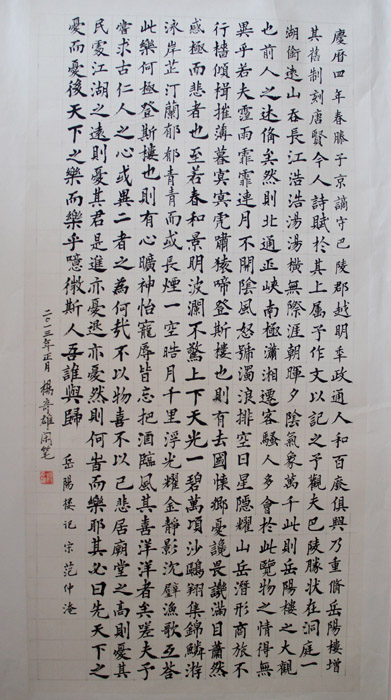 慶曆四年春滕子京謫守巴陵郡越明年政通人和百廢俱興乃重脩岳陽樓增
其舊制刻唐賢今人詩賦於其上属予作文以記之予觀夫巴陵勝狀在洞庭一
湖銜遠山吞長江浩浩湯湯橫無際涯朝暉夕陰氣象萬千此則岳陽樓之大觀
也前人之述備矣然則北通巫峽南極瀟湘遷客騷人多會於此覽物之情得無
異乎若夫霪雨霏霏連月不開陰風怒號濁浪排空日星隱耀山岳潛形商旅不
行檣傾楫摧薄暮冥冥虎嘯猿啼登斯樓也則有去國懷鄉憂讒畏譏滿目蕭然
感極而悲者也至若春和景明波瀾不驚上下天光一碧萬頃沙鷗翔集錦鱗游
泳岸芷汀蘭郁郁青青而或長煙一空皓月千里浮光耀金靜影沉璧漁歌互答
此樂何極登斯樓也則有心曠神怡寵辱皆忘把酒臨風其喜洋洋者矣嗟夫予
嘗求古仁人之心或異二者之為何哉不以物喜不以己悲居廟堂之高則憂其
民處江湖之遠則憂其君是進亦憂退亦憂然則何時而樂耶其必曰先天下之
憂而憂後天下之樂而樂乎噫微斯人吾誰與歸
岳陽樓记宋范仲淹
二〇一三年正月楊奇雄